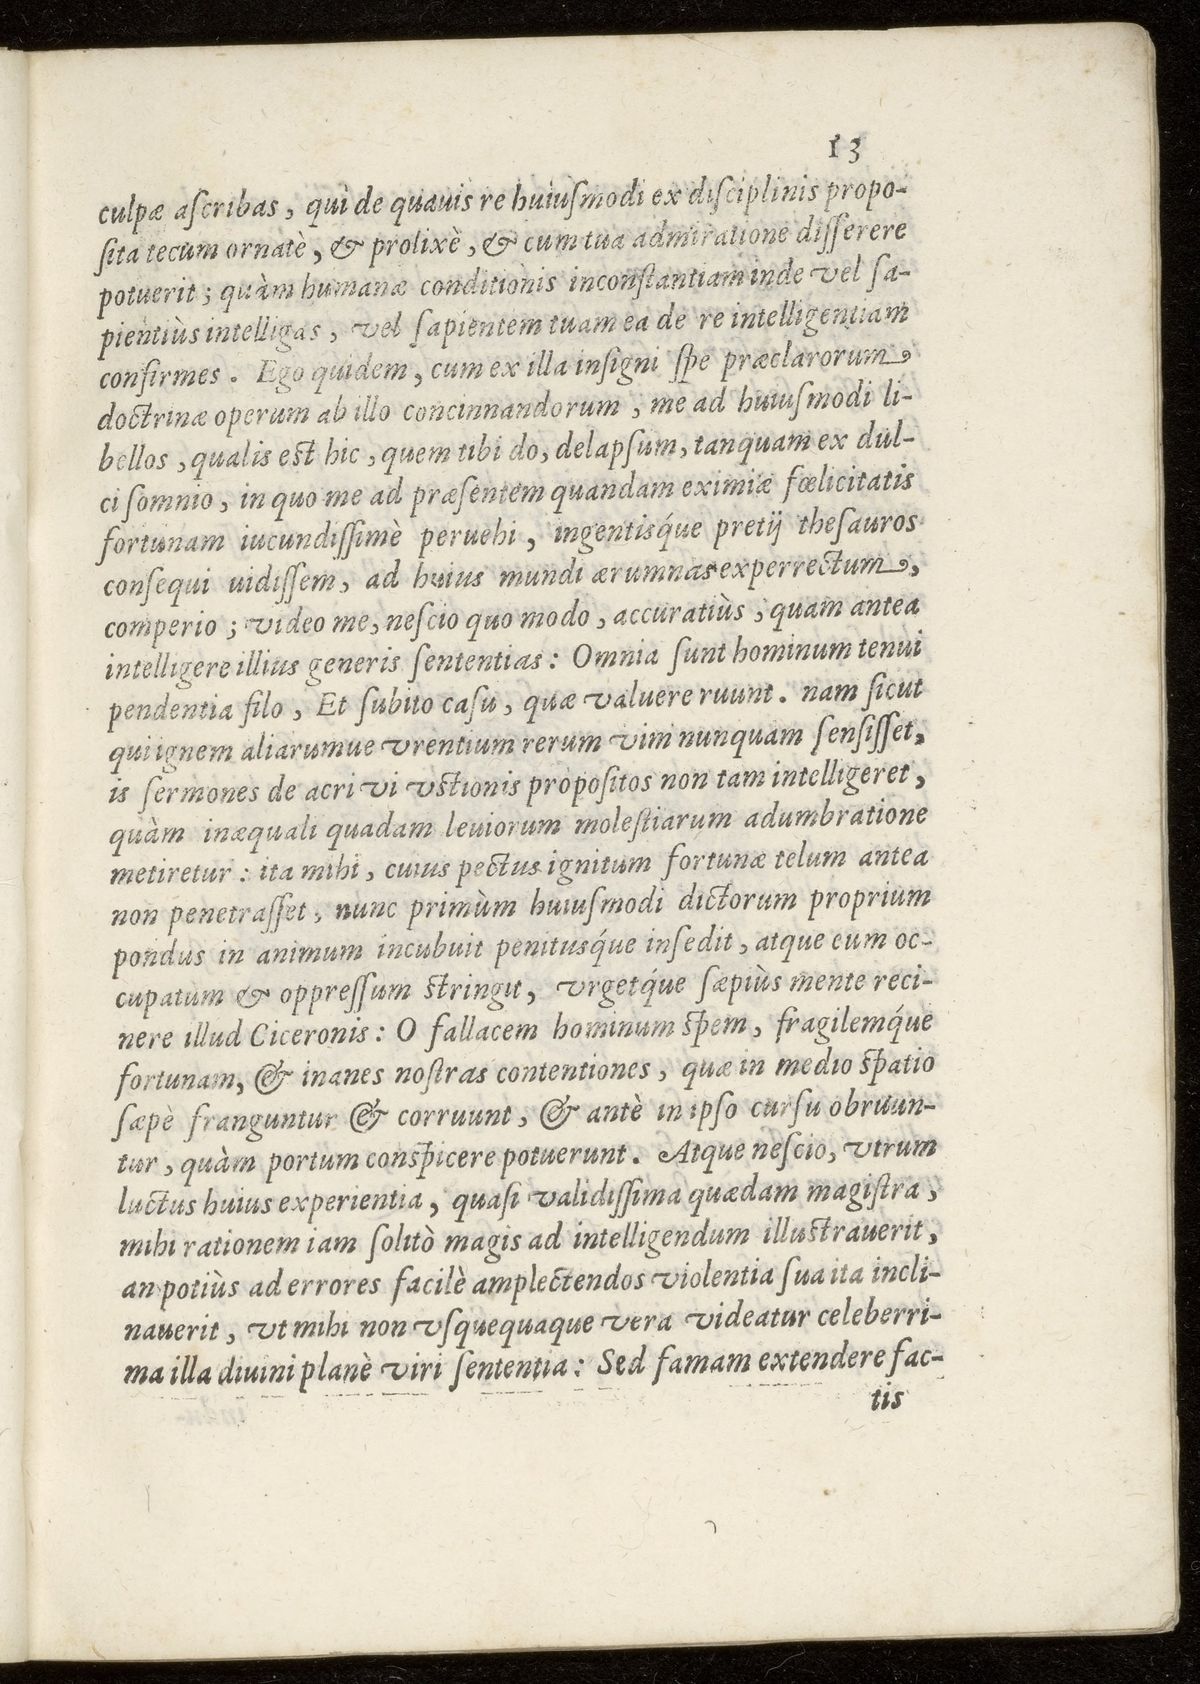 13
culpæ aſcribas, qui de quauis re huiuſmodi ex diſciplinis propo-
ſita tecum ornatè, & prolixè, & cum tua admiratione diſſerere
potuerit; quàm humanæ conditionis inconſtantiam inde vel ſa-
pientiùs intelligas, vel ſapientem tuam ea de re intelligentiam
confirmes. Ego quidem, cum ex illa inſigni ſpe præclarorum
doctrinæ operum ab illo concinnandorum, me ad huiuſmodi li-
bellos, qualis est hic, quem tibi do, delapſum, tanquam ex dul-
ci ſomnio, in quo me ad præſentem quandam eximiæ fœlicitatis
fortunam iucundiſſimè peruehi, ingentisq́ue pretij theſauros
conſequi uidiſſem, ad huius mundi ærumnas experrectum,
comperio; video me, neſcio quo modo, accuratiùs, quam antea
intelligere illius generis ſententias: Omnia ſunt hominum tenui
pendentia filo, Et ſubito caſu, quæ valuere ruunt. nam ſicut
qui ignem aliarumue vrentium rerum vim nunquam ſenſiſſet,
is ſermones de acri vi vstionis propoſitos non tam intelligeret,
quàm inæquali quadam leuiorum moleſtiarum adumbratione
metiretur: ita mihi, cuius pectus ignitum fortunæ telum antea
non penetraſſet, nunc primùm huiuſmodi dictorum proprium
pondus in animum incubuit penitusq́ue inſedit, atque eum oc-
cupatum & oppreſſum stringit, vrgetq́ue ſæpiùs mente reci-
nere illud Ciceronis: O fallacem hominum ſpem, fragilemq́ue
fortunam, & inanes noſtras contentiones, quæ in medio ſpatio
ſæpè franguntur & corruunt, & antè in ipſo curſu obruun-
tur, quàm portum conſpicere potuerunt. Atque neſcio, vtrum
luctus huius experientia, quaſi validiſſima quædam magiſtra,
mihi rationem iam ſolitò magis ad intelligendum illustrauerit,
an potiùs ad errores facilè amplectendos violentia ſua ita incli-
nauerit, vt mihi non vſquequaque vera videatur celeberri-
ma illa diuini planè viri ſententia: Sed famam extendere fac-
tis